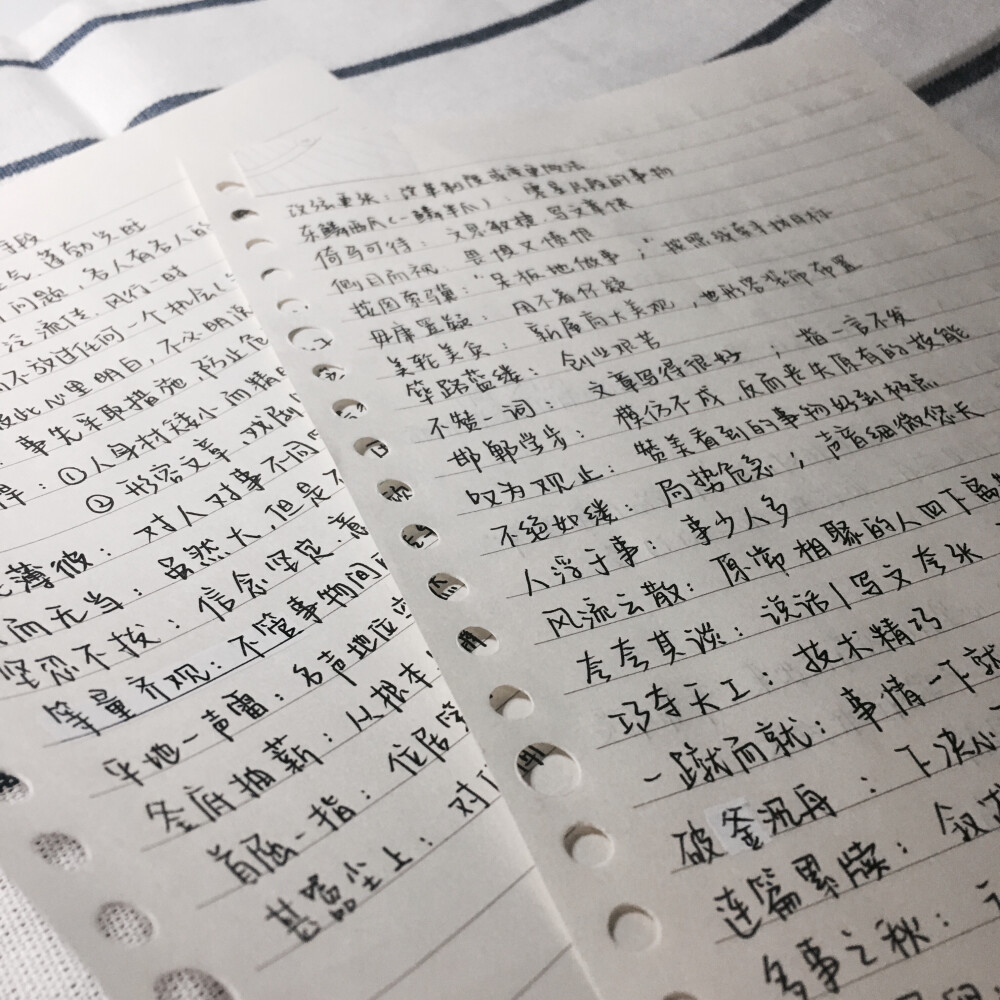 手段
气 蓬勃
问题，各人有各人的
泛流传、风行一时
不放过任何一个机会
彼此心里明白，不必明说
事先采取措施，防止危
悍：①人身材矮小而精
②形容文章，戏剧
薄彼：对人对事不同
而无当：虽然大，但是不
坚忍不拔：信念坚定，意
等量齐观：不管事物间
平地一声雷：名声地位
釜底抽薪：从根本
首屈一指：位居
甚嚣尘上：对
改弦更张：改革制度或变更做法
东鳞西爪(一鳞半爪)：零星片段的事物
倚马可待：文思敏捷 写文章快
侧目而视 畏惧又愤恨
按图索骥："呆板地做事"；按照线索寻找目标
毋庸置疑：用不着怀疑
美轮美奂：新屋高大美观，也形容装饰布置
筚路蓝缕：创业艰苦
不赞一词：文章写得很好；指一言不发
邯郸学步：模仿不成，反而丧失原有的技能
叹为观止：赞美看到的事物好到极点
不绝如缕：局势危急；声音细微悠长
人浮于事：事少人多
风流云散：原常相聚的人四下离
夸夸其谈：说话|写文夸张
巧夺天工：技术精巧
一蹴而就：事情一下就
破釜沉舟：下决心
连篇累牍：叙述
多事之秋：